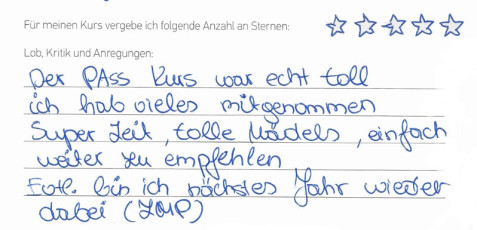 Für meinen Kurs vergebe ich folgende Anzahl an Sternen:
Lob, Kritik und Anregungen:
Der PAss Kurs war echt toll
ich hab vieles mitgenommen
Super Zeit, tolle Mädels, einfach
weiter zu empfehlen
Evtl. bin ich nächstes Jahr wieder
dabei (ZMP)